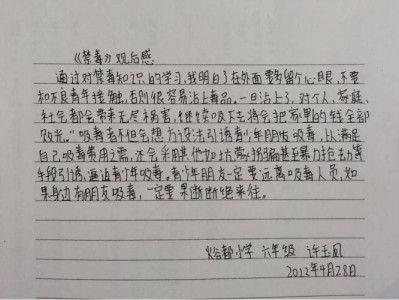 《禁毒》观后感
通过对禁毒知识的学习,我明白了在外面要多留个心眼,不要
和不良青年接触,否则很容易沾上毒品。一旦沾上了,对个人、家庭、
社会都会带来无尽祸害,继续吸下去将会把家里的钱全部
败光。"吸毒者不但会想方设法引诱青少年朋友吸毒,以满足
自己吸毒费用之需,还会采用其他如坑蒙拐骗甚至暴力抢劫等
手段引诱,逼迫青少年吸毒。青少年朋友一定要远离吸毒人员,如
果身边有朋友吸毒,一定要果断断绝来往。
小学 六年级 许玉凤
2012年4月28日